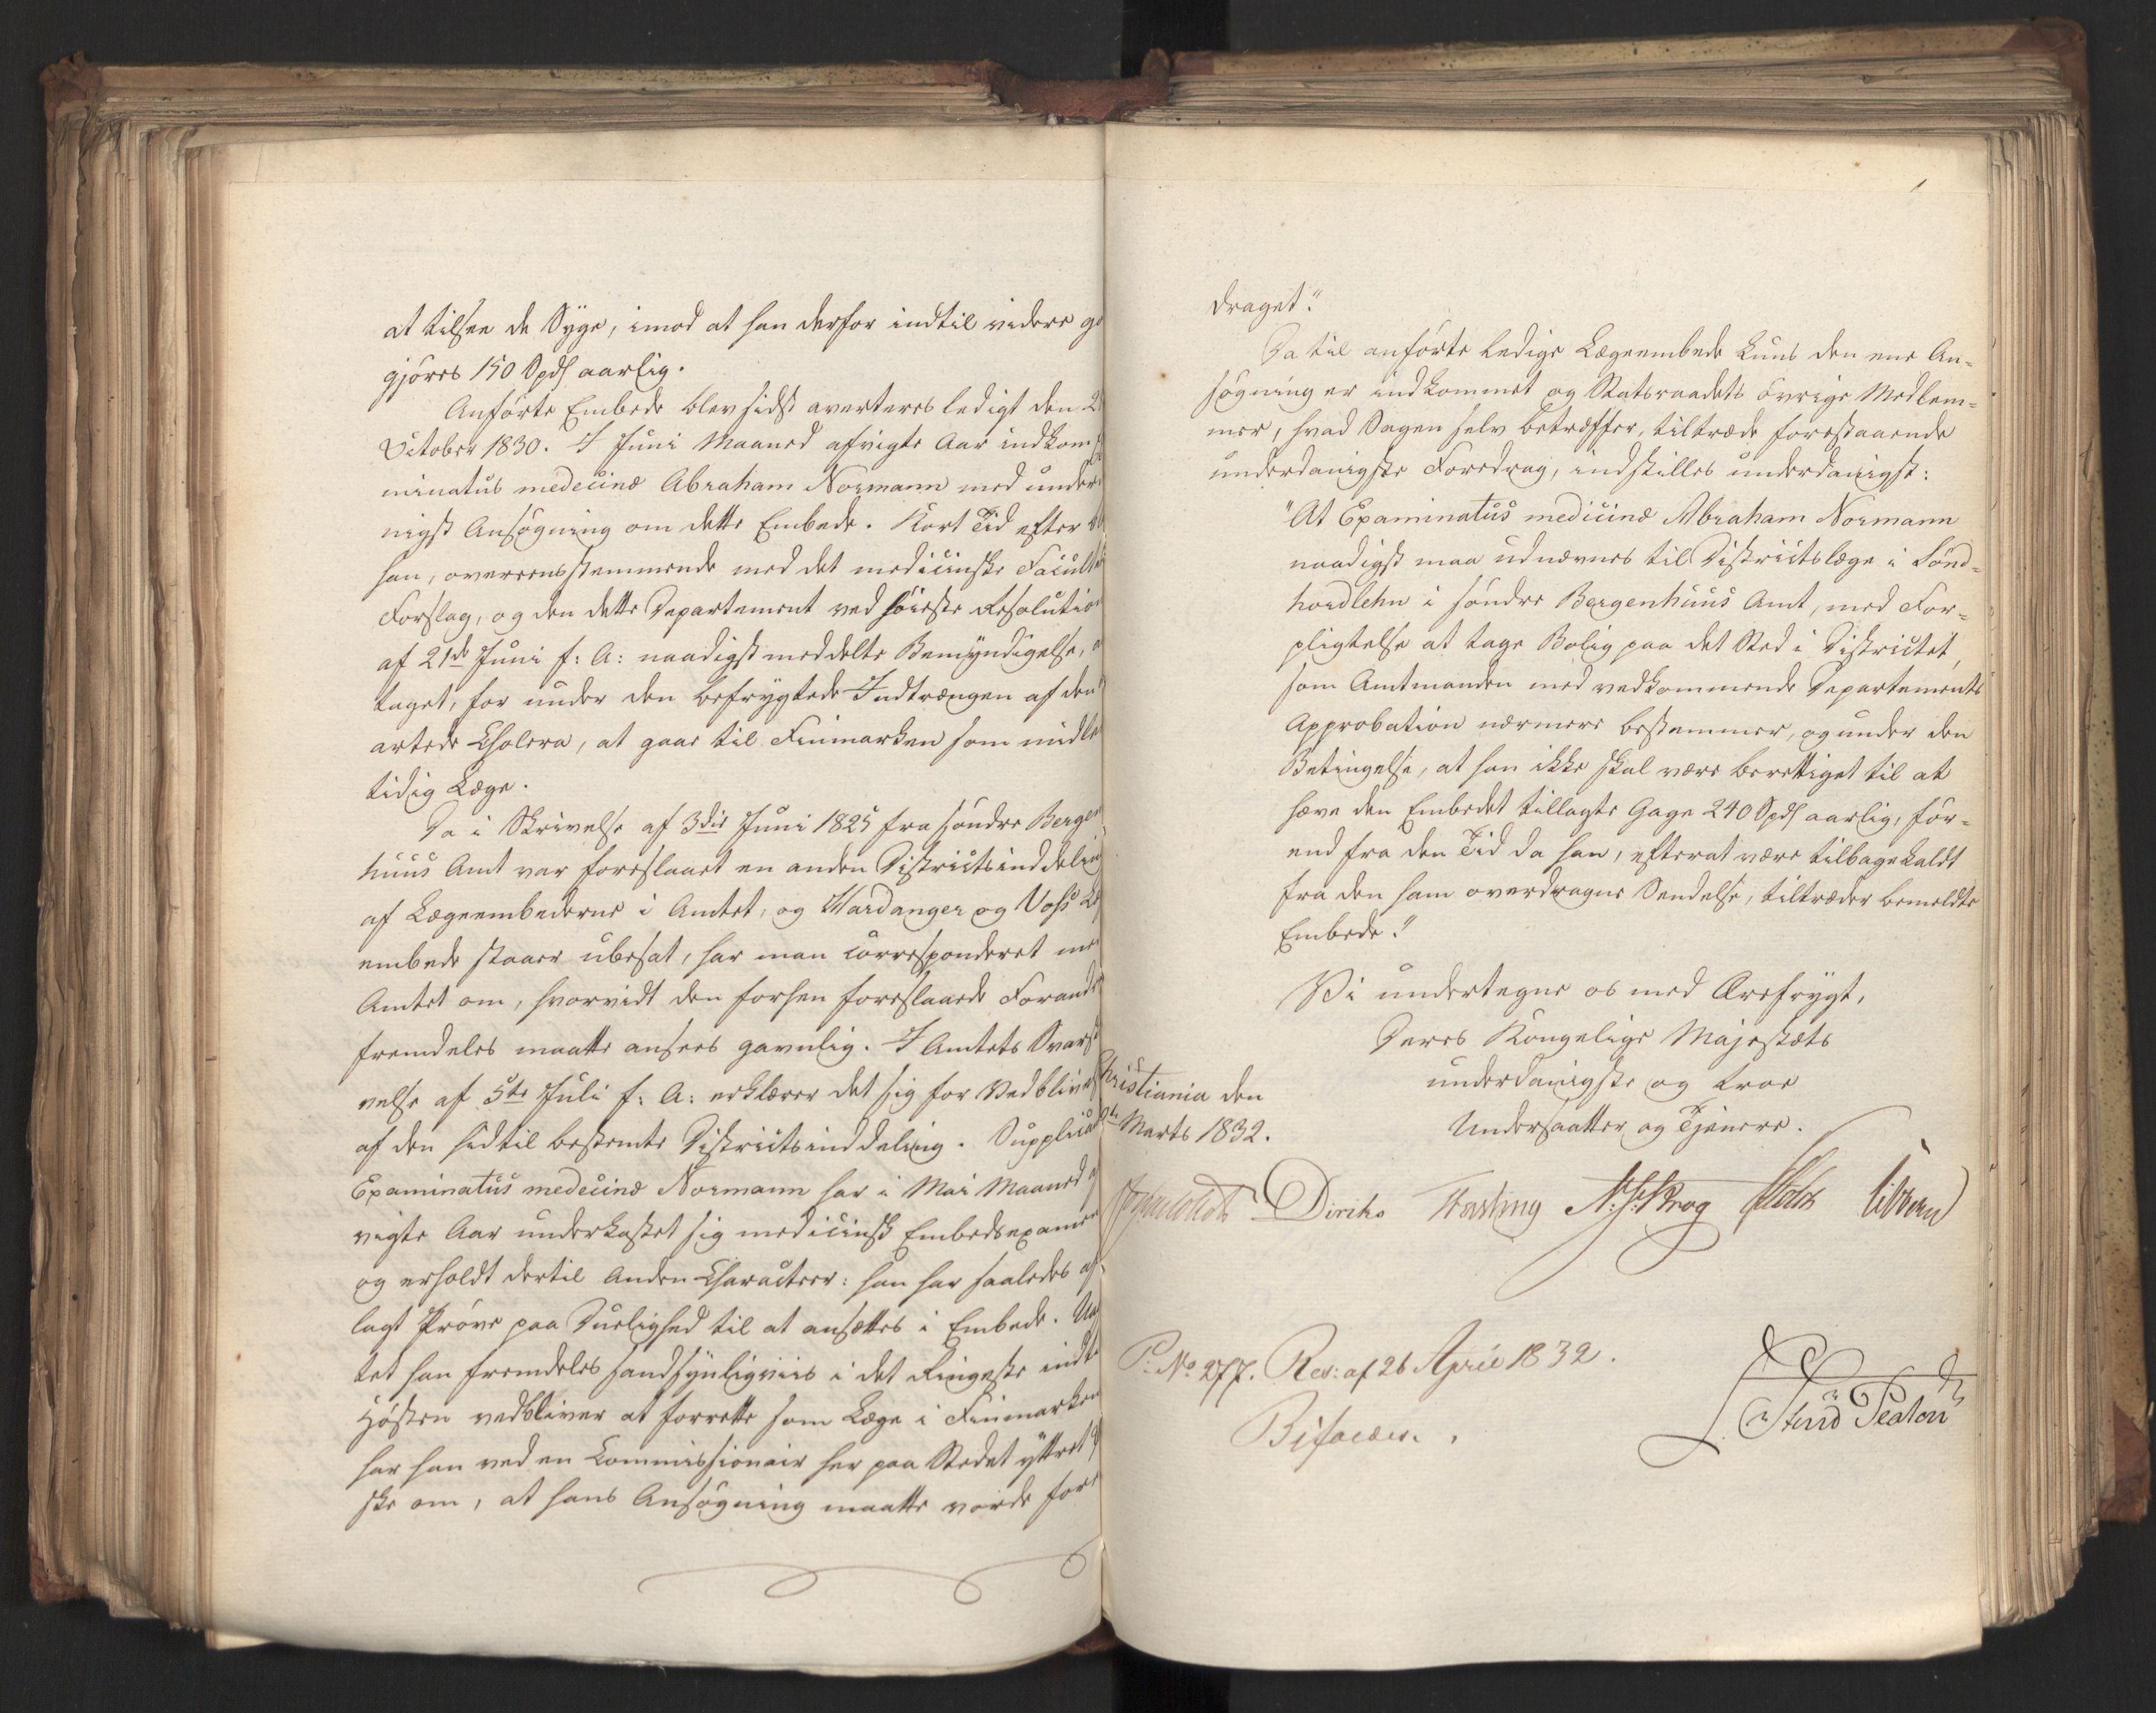 at tilsee de Syge, imod at han derfor indtil videre go
gjøres 150 Spd aarlig.
Anførte Embede blev sidst averteres ledigt den 2
October 1830. I Juni Maaned afvigte Aar indkom
minatus medecinæ Abraham Normann med under
nigst Ansøgning om dette Embede. Kort Tid efter
han, overeensstemmende med det medicinske Facult
Forslag, og den dette Departement ved høieste Resolution
af 21de Juni f: A: naadigst meddelte Bemyndigelse, a
taget, for under den befrygtede Indtrængen af den
artede Cholera, at gaae til Finmarken som midle
tidig Læge.
Da i Skrivelse af 3die Juni 1825 fra søndre Bergen
huus Amt var foreslaaet en anden Districtsinddeling
af Lægeembederne i Amtet, og Hardanger og Voss Læ
embede staaer ubesat, har man corresponderet me
Amtet om, hvorvidt den forhen foreslaaede Forand
fremdeles maatte ansees gavnlig. I Amtets Svars
velse af 5te Juli f: A: erklærer det sig for Vedblive
af den hidtil bestemte Districtsinddeling. Supplica
Examinatus medecinæ Normann har i Mai Maaned
vigte Aar underkastet sig medicinsk Embedsexamen
og erholdt dertil Anden Characteer: han har saaledes af-
lagt Prøve paa Duelighed til at ansættes i Embede. Uag
tet han fremdeles sandsynligviis i det Ringeste indt
Høsten vedbliver at forrette som Læge i Finmarken
har han ved en Commissionair her paa Stedet yttret
ske om, at hans Ansøgning maatte vorde fore
draget."
Da til anførte ledige Lægeembede kuns den ene An-
søgning er indkommet og Statsraadets øvrige Medlem-
mer, hvad Sagen selv betræffer, tiltræde forestaaende
underdanigste Foredrag, indstilles underdanigst:
"At Examinatus medicinæ Abraham Normann
naadigst maa udnævnes til Districtslæge i Sønd-
hordlehn i søndre Bergenhuus Amt, med For-
pligtelse at tage Bolig paa det Sted i Districtet,
som Amtmanden med vedkommende Departements
Approbation nærmere bestemmer, og under den
Betingelse, at han ikke skal være berettiget til at
hæve den Embedet tillagte Gage 240 Spd aarlig, før-
end fra den Tid da han, efterat være tilbagekaldt
fra den ham overdragne Sendelse, tiltræder bemeldte
Embede."
Vi undertegne os med Ærefrygt,
Deres Kongelige Majestæts
underdanigste og troe
Undersaatter og Tjenere.
Christiania den
Marts 1832.
Diriks Fasting Krog Holst Vibe
P. No 277. Res: af 26 April 1832.
Bifaldes.